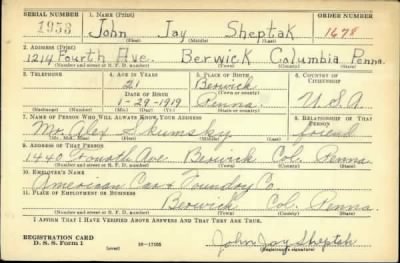 SERIAL NUMBER 1. NAME (Print) ORDER NUMBER
1953 John Jay Sheptak 1678
(First) (Middle) (Last)
2. ADDRESS (Print)
1214 Fourth Ave. Berwick Columbia Penna.
(Number and street or R. F. D. number) (Town) (County) (State)
3. TELEPHONE 4. AGE IN YEARS 5. PLACE OF BIRTH 6. COUNTRY OF CITIZENSHIP
21 Berwick
DATE OF BIRTH (Town or county)
1-29-1919 Penna. U.S.A.
(Exchange) (Number) (Mo.) (Day) (Yr.) (State or country)
7. NAME OF PERSON WHO WILL ALWAYS KNOW YOUR ADDRESS 8. RELATIONSHIP OF THAT PERSON
Mr. Alex Skumsky friend
(Mr., Mrs., Miss) (First) (Middle) (Last)
9. ADDRESS OF THAT PERSON
1440 Fourth Ave Berwick Col. Penna.
(Number and street or R. F. D. number) (Town) (County) (State)
10. EMPLOYER'S NAME
American Car & Foundry Co.
11. PLACE OF EMPLOYMENT OR BUSINESS
Berwick Col. Penna.
(Number and street or R. F. D. number) (Town) (County) (State)
I AFFIRM THAT I HAVE VERIFIED ABOVE ANSWERS AND THAT THEY ARE TRUE.
REGISTRATION CARD
D. S. S. Form 1 (over) 16-17105 John Jay Sheptak
(Registrant's signature)